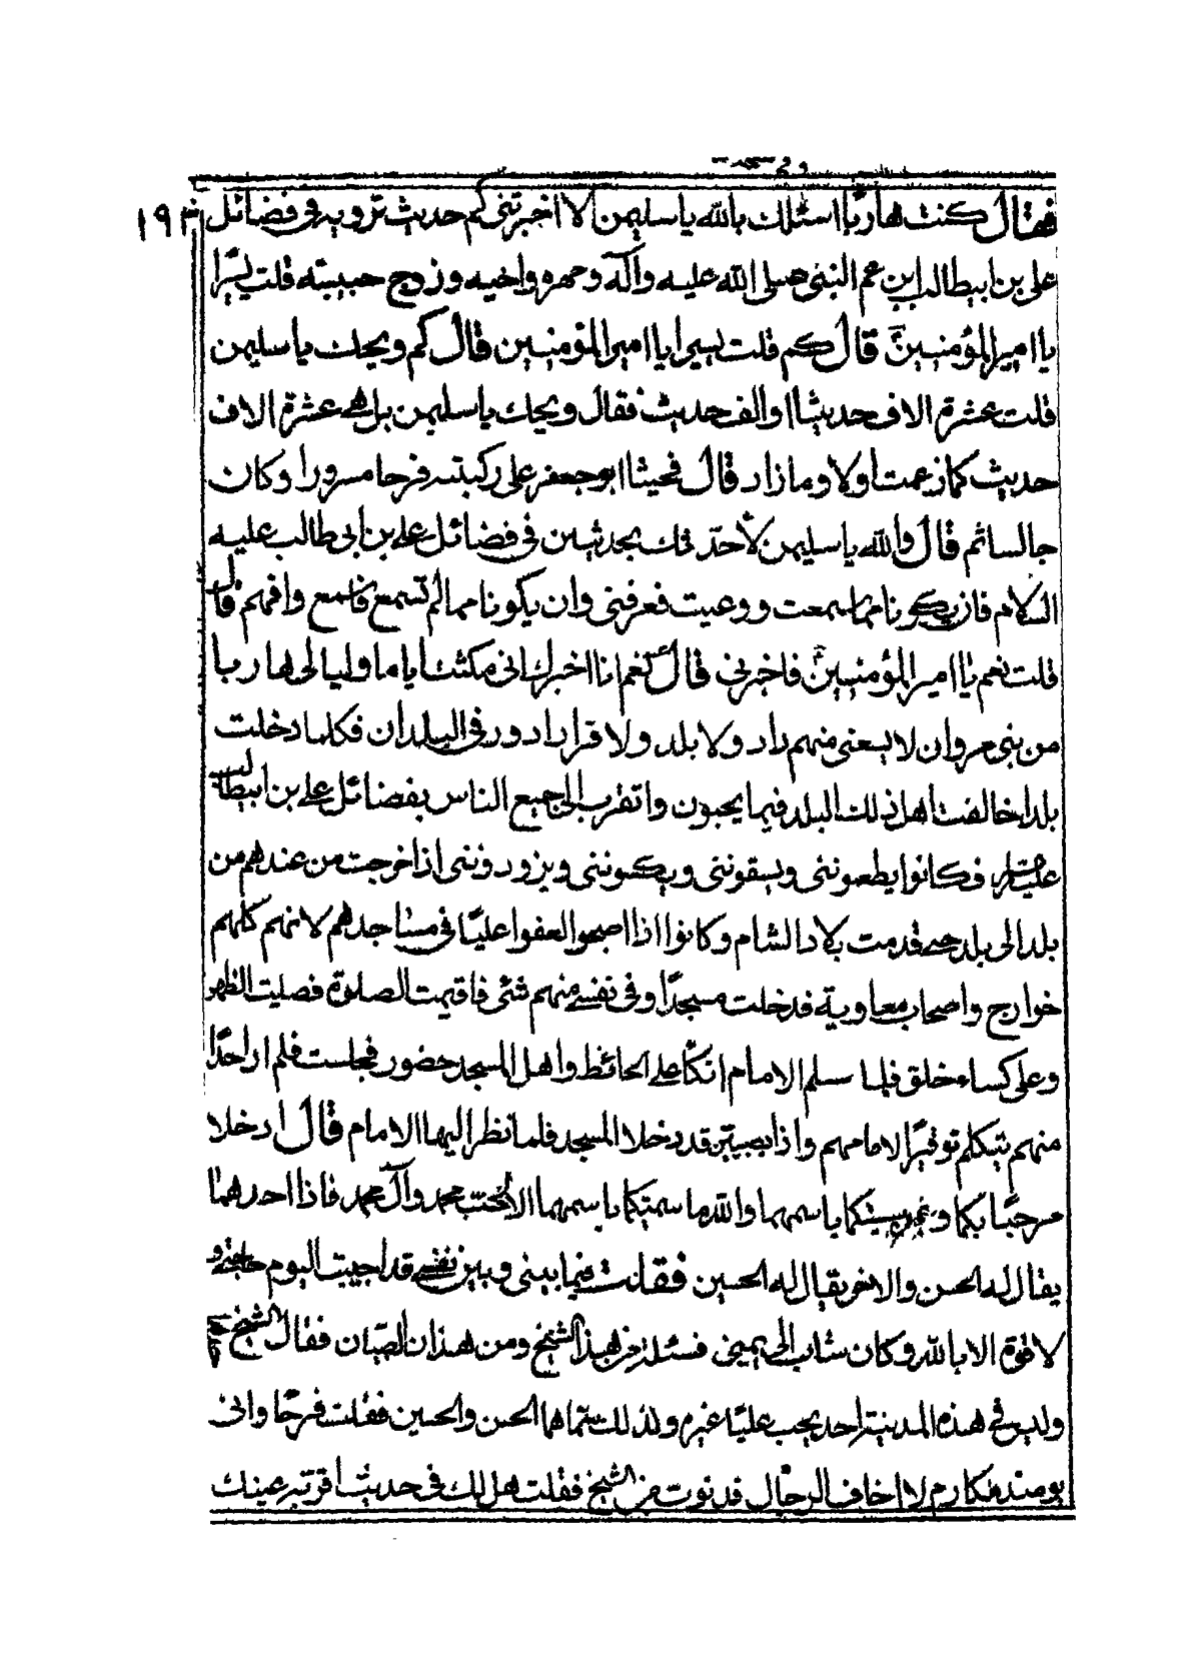 ١٩٣
فقال كنت هاربا اسئلك بالله يا سليمن الا اخبرتني كم حديث ترويه في فضائل
علي بن ابيطالب ابن عم النبي صلى الله عليه وآله وصهره واخيه وزوج حبيبته قلت يسيرا
يا امير المؤمنين قال كم قلت يسيرا يا امير المؤمنين قال كم ويحك يا سليمن
قلت عشرة الاف حديثا او الف حديث فقال ويحك يا سليمن بل هي عشرة الاف
حديث كما زعمت اولا وما زاد قال فجيثا ابو جعفر على ركبتيه فرحا مسرورا وكان
جالسا ثم قال والله يا سليمن لأحدّثك بحديثين في فضائل علي بن ابي طالب عليه
السلام فان يكونا مما سمعت ووعيت فعرفني وان يكونا مما لم تسمع فاسمع وافهم قال
قلت نعم يا امير المؤمنين فاخبرني قال نعم انا اخبرك اني مكثت اياما وليالي هاربا
من بني مروان لا يسعني منهم دار ولا بلد ولا قرار ادور في البلدان فكلما دخلت
بلدا خالفت اهل ذلك البلد فيما يحبون واتقرب الى جميع الناس بفضائل علي بن ابيطالب
عليه السلام فكانوا يطعموني ويسقونني ويكسونني ويزودونني اذا خرجت من عندهم من
بلد الى بلد حتى قدمت بلاد الشام وكانوا اذا اصبحوا لعنوا عليّا في مساجدهم لانهم كلهم
خوارج واصحاب معاوية فدخلت مسجدًا وفي نفسي منهم شئ فاقيمت الصلوة فصليت الظهر
وعلي كساء خلق فلما سلم الامام اتكأ على الحائط واهل المسجد حضور فجلست فلم ار احدًا
منهم يتكلم توقيرًا لامامهم واذا بصبيين قد دخلا المسجد فلما نظر اليهما الامام قال ادخلا
مرحبًا بكما وبمن سميتكما باسمهما والله ما سميتكما باسمهما الا لحب محمد وآل محمد فاذا احدهما
يقال له الحسن والاخر يقال له الحسين فقلت فيما بيني وبين نفسي قد اجيبت اليوم حاجتي و
لا قوة الا بالله وكان شاب الى يميني فسئلته من هذا الشيخ ومن هذان الصبيان فقال الشيخ جدهما
وليس في هذه المدينة احد يحب عليّا غيره ولذلك سماهما الحسن والحسين فقلت فرحًا واني
يومئذ صارم لا اخاف الرجال فدنوت من الشيخ فقلت هل لك في حديث اقر به عينك